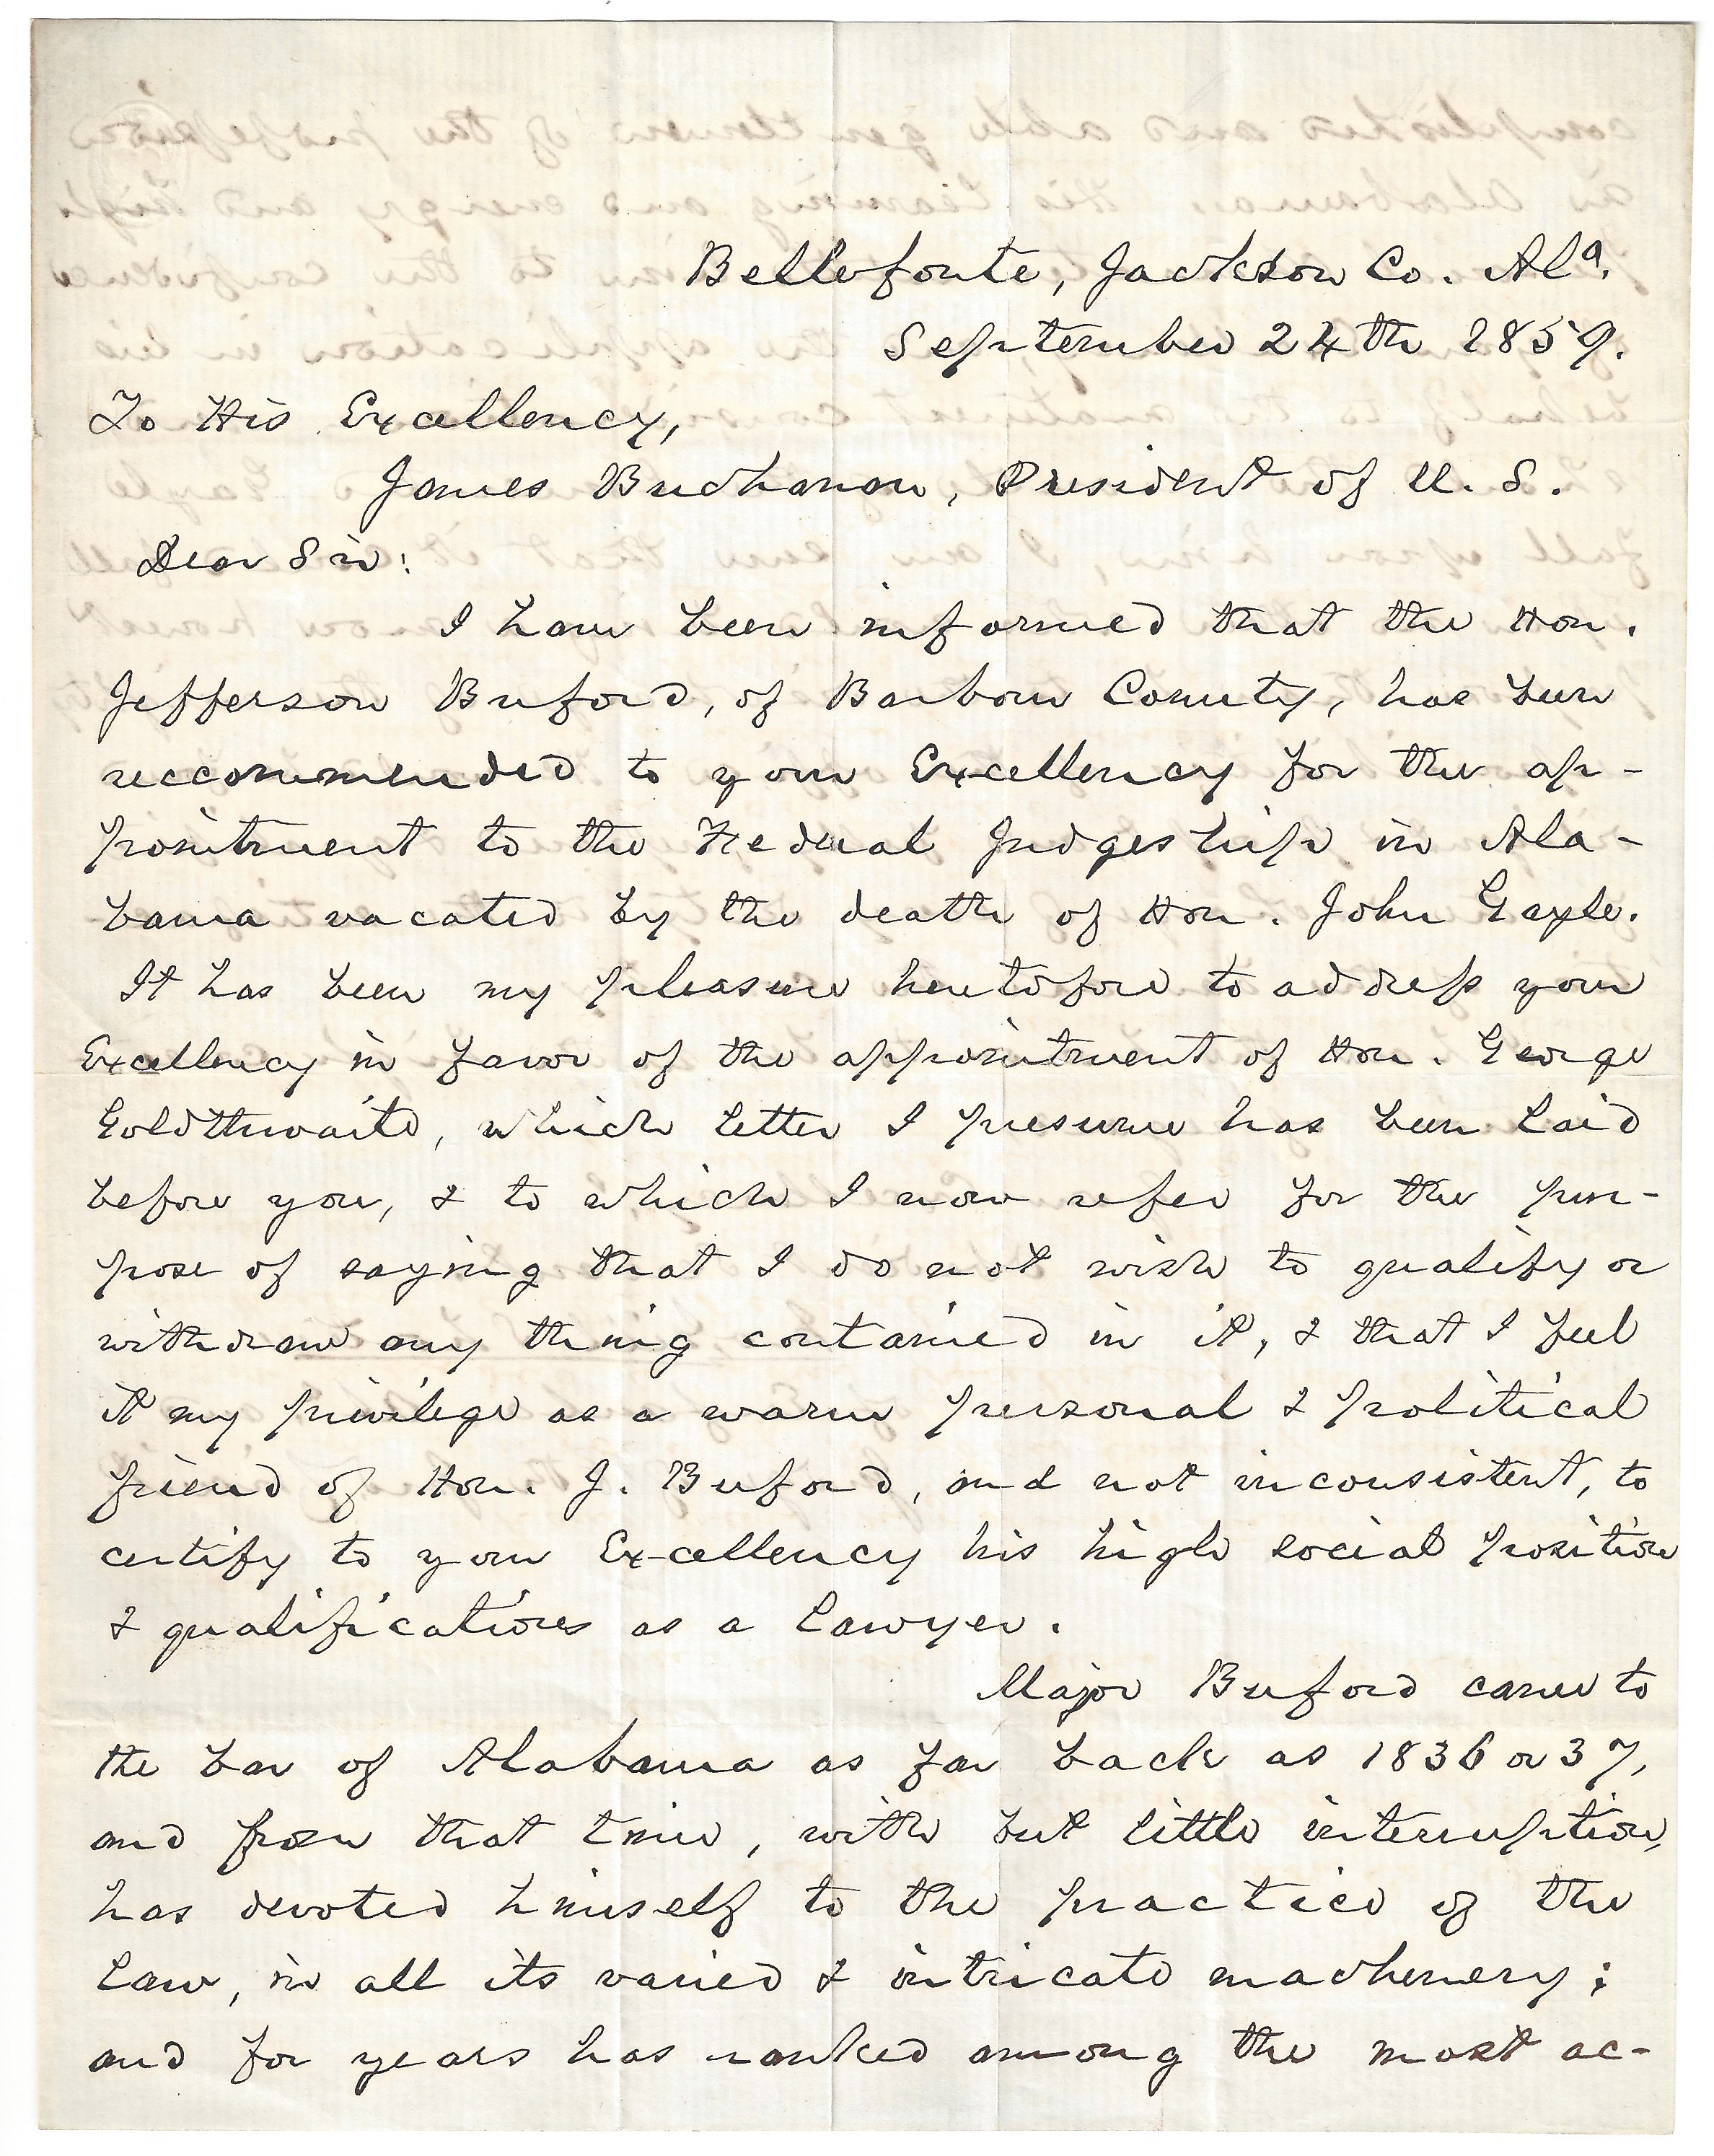 Bellefonte, Jackson Co. Ala.
September 24th 1859.
To His Excellency,
James Buchanan, President of U. S.
Dear Sir:
I have been informed that the Hon.
Jefferson Buford, of Barbour County, has been
reccommended to your Excellency for the ap-
pointment to the Federal Judgeship in Ala-
bama vacated by the death of Hon. John Gayle.
It has been my pleasure heretofore to address your
Excellency in favor of the appointment of Hon. George
Goldthwaite, which letter I presume has been laid
before you, & to which I now refer for the pur-
pose of saying that I do not wish to qualify or
withdraw any thing contained in it, & that I feel
it my privilege as a warm personal & political
friend of Hon. J. Buford, and not inconsistent, to
certify to your Excellency his high social position
& qualifications as a lawyer.
Major Buford came to
the bar of Alabama as far back as 1836 or 37,
and from that time, with but little interruption,
has devoted himself to the practice of the
law, in all its varied & intricate machenery;
and for years has ranked among the most ac-